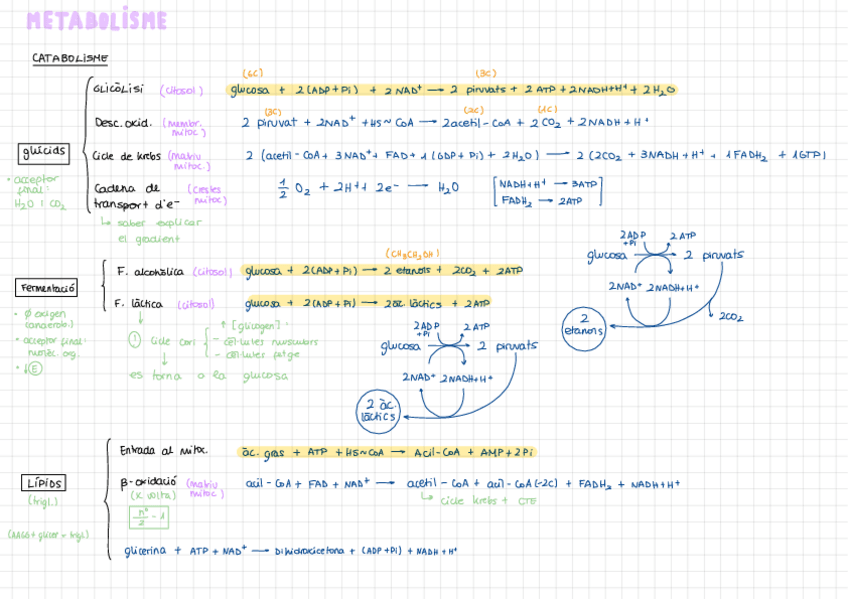 METABOLISME
CATABOLISME
(6C) (3C)
GLICÒLISI (citosol) glucosa + 2(ADP+Pi) + 2 NAD⁺ → 2 piruvats + 2 ATP + 2NADH+H⁺ + 2H₂O
(3C) (2C) (1C)
Desc. oxid. (membr. mitoc.) 2 piruvat + 2NAD⁺ + HS~CoA → 2acetil-CoA + 2CO₂ + 2NADH + H⁺
glúcids
Cicle de Krebs (matriu mitoc.) 2 (acetil-CoA + 3NAD⁺ + FAD + 1(GDP + Pi) + 2H₂O) → 2 (2CO₂ + 3NADH + H⁺ + 1FADH₂ + 1GTP)
• acceptor final: H₂O i CO₂
Cadena de transport d'e- (crestes mitoc) 1/2 O₂ + 2H⁺ + 2e⁻ → H₂O
NADH+H⁺ → 3ATP
FADH₂ → 2ATP
↳ saber explicar
el gradient
(CH₃CH₂OH)
F. alcohòlica (citosol) glucosa + 2(ADP+Pi) → 2 etanols + 2CO₂ + 2ATP
Fermentació
F. làctica (citosol) glucosa + 2(ADP+Pi) → 2àc. làctics + 2ATP
2ADP +Pi 2ATP
glucosa → 2 piruvats
2NAD⁺ 2NADH+H⁺
2CO₂
2 etanols
• Ø oxigen
(anaerobi.)
• acceptor final:
molèc. org.
• ↓Ⓔ
① Cicle Cori
↑ [glucogen]:
- cèl·lules musculars
- cèl·lules fetge
es torna a la glucosa
2ADP +Pi 2ATP
glucosa → 2 piruvats
2NAD⁺ 2NADH+H⁺
2 àc. làctics
Entrada al mitoc. àc. gras + ATP + HS~CoA → Acil-CoA + AMP + 2Pi
LÍPIDS
(trigl.)
β-oxidació (matriu mitoc.) acil-CoA + FAD + NAD⁺ → acetil-CoA + acil-CoA(-2C) + FADH₂ + NADH+H⁺
(x volta)
↳ cicle krebs + CTE
nº/2 - 1
(AAGG + glicer = trigl)
glicerina + ATP + NAD⁺ → Dihidroxicetona + (ADP+Pi) + NADH + H⁺